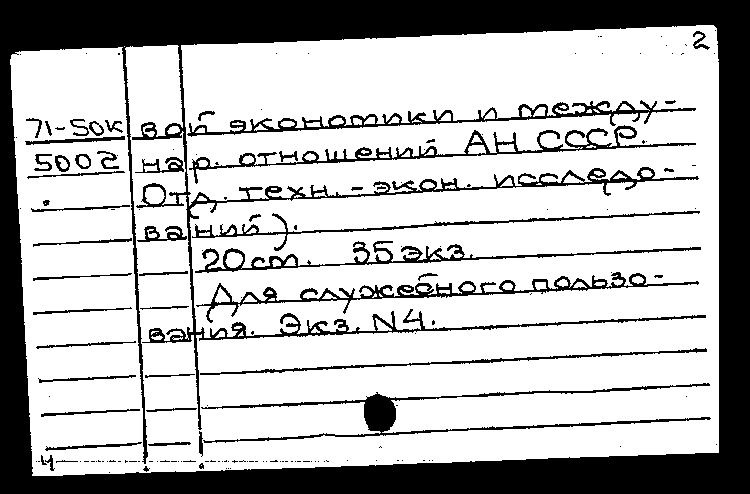 2
71-50к вой экономики и между-
5002 нар. отношений АН СССР.
Отд. техн.-экон. исследо-
ваний).
20 cm. 35 экз.
Для служебного пользо-
вания. Экз. N4.
ч